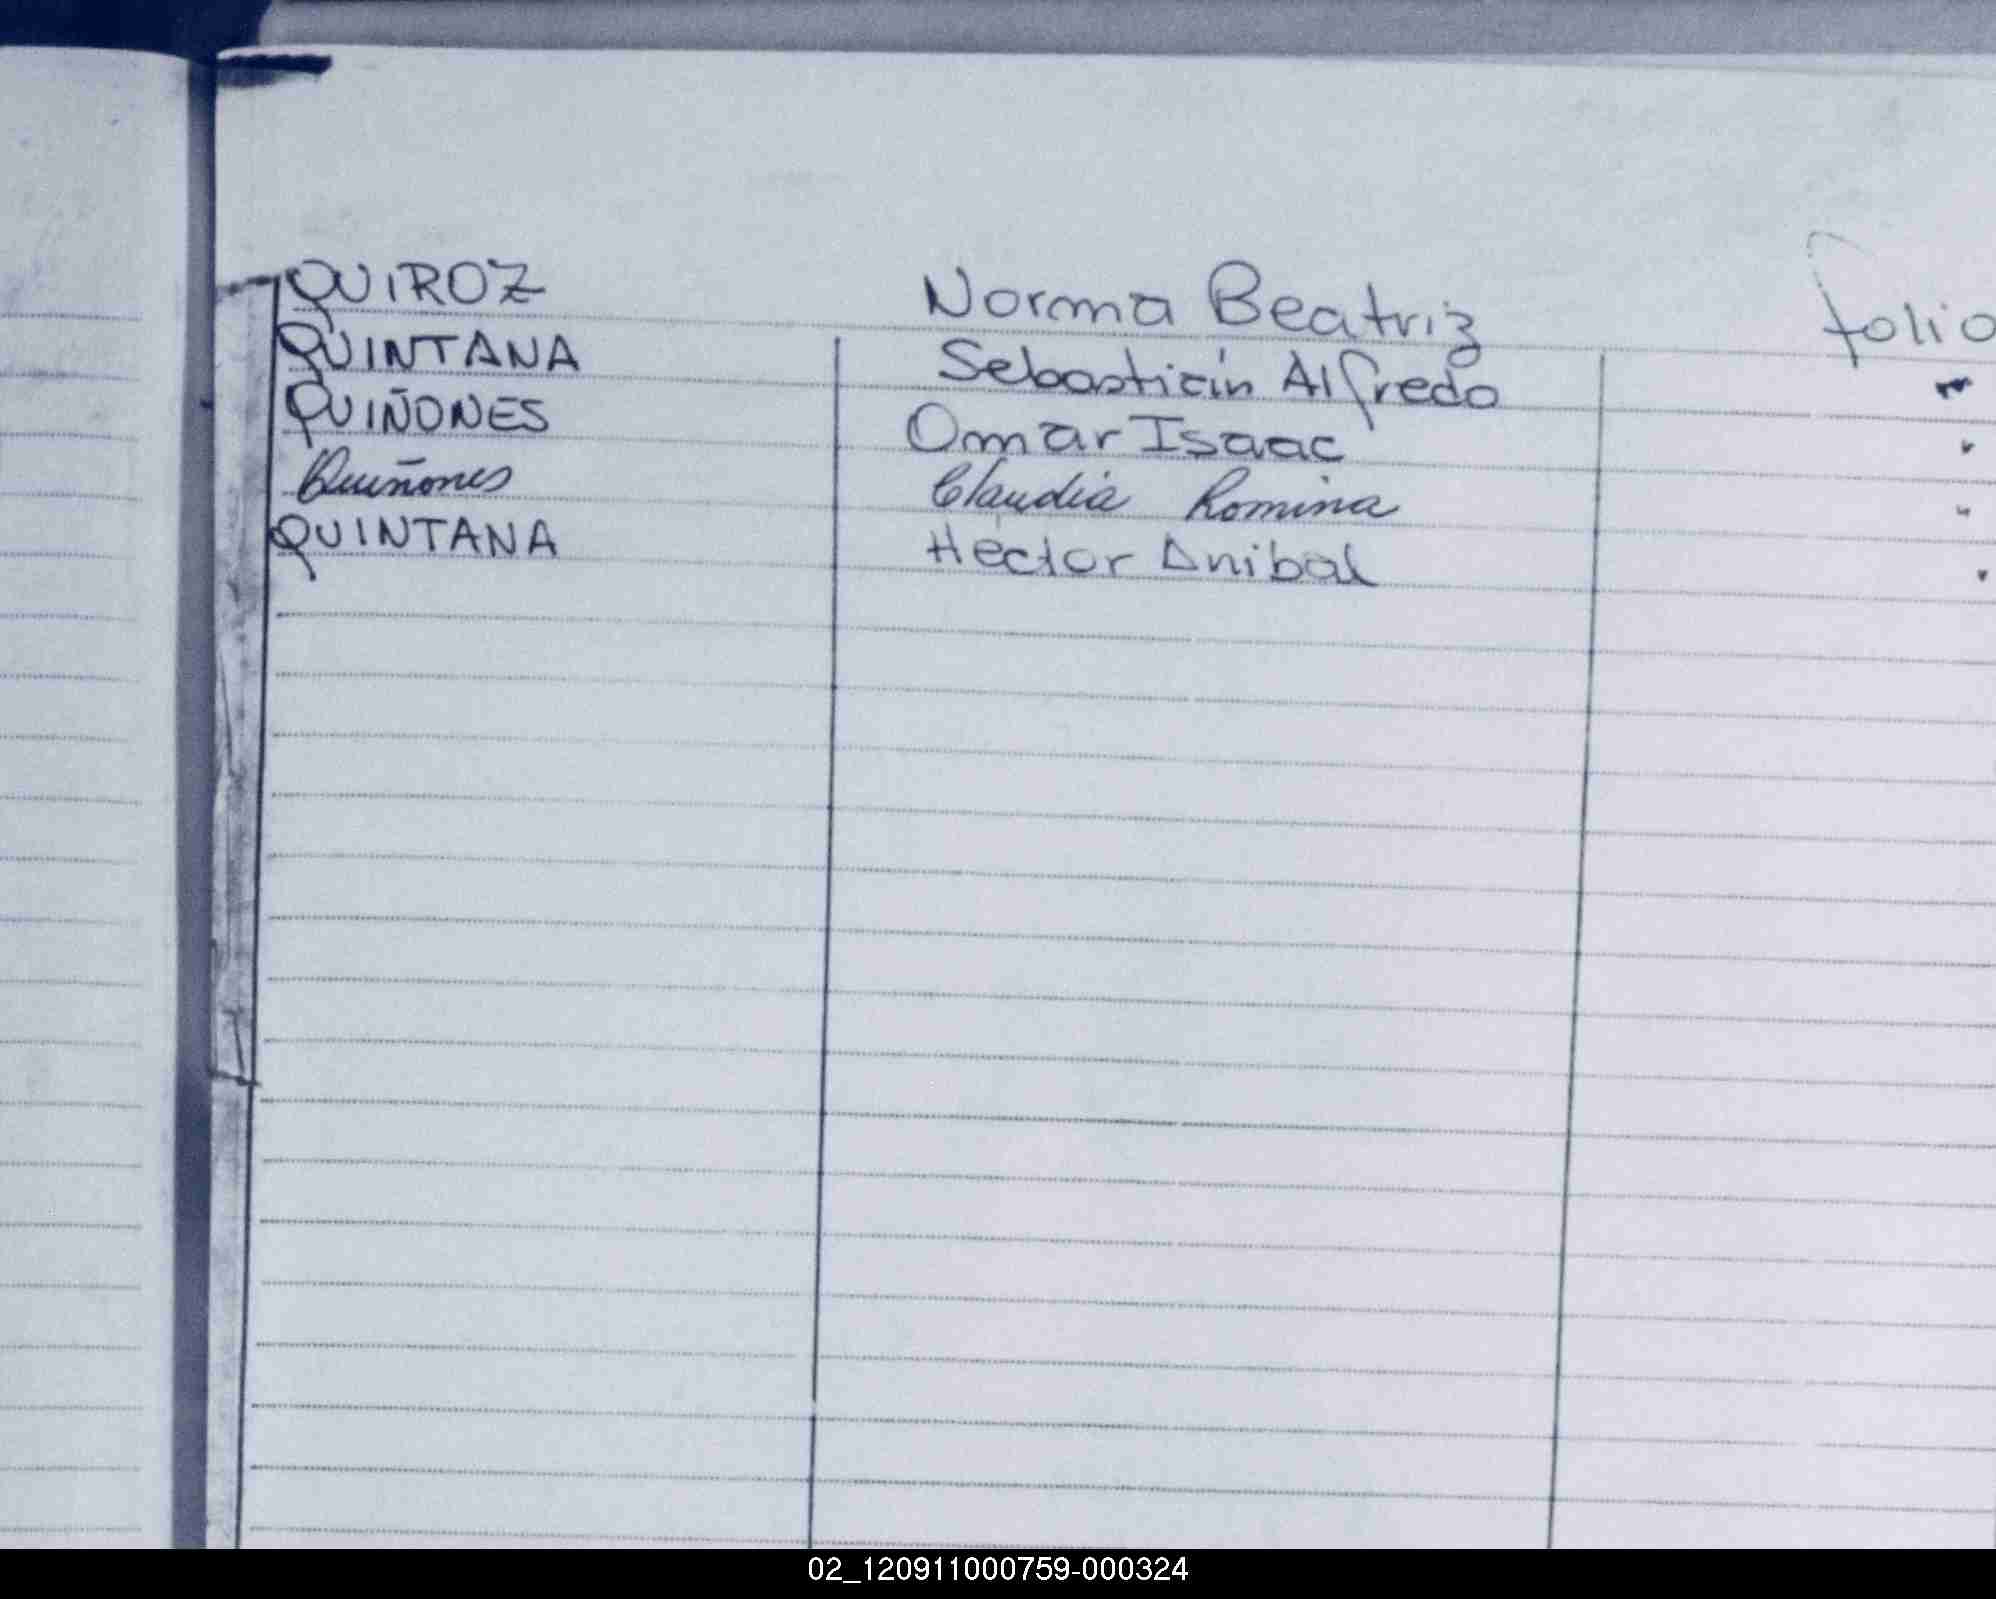 QUIROZ Norma Beatriz folio
QUINTANA Sebastián Alfredo "
QUIÑONES Omar Isaac "
Quiñones Claudia Romina "
QUINTANA Hector Anibal "
02_120911000759-000324